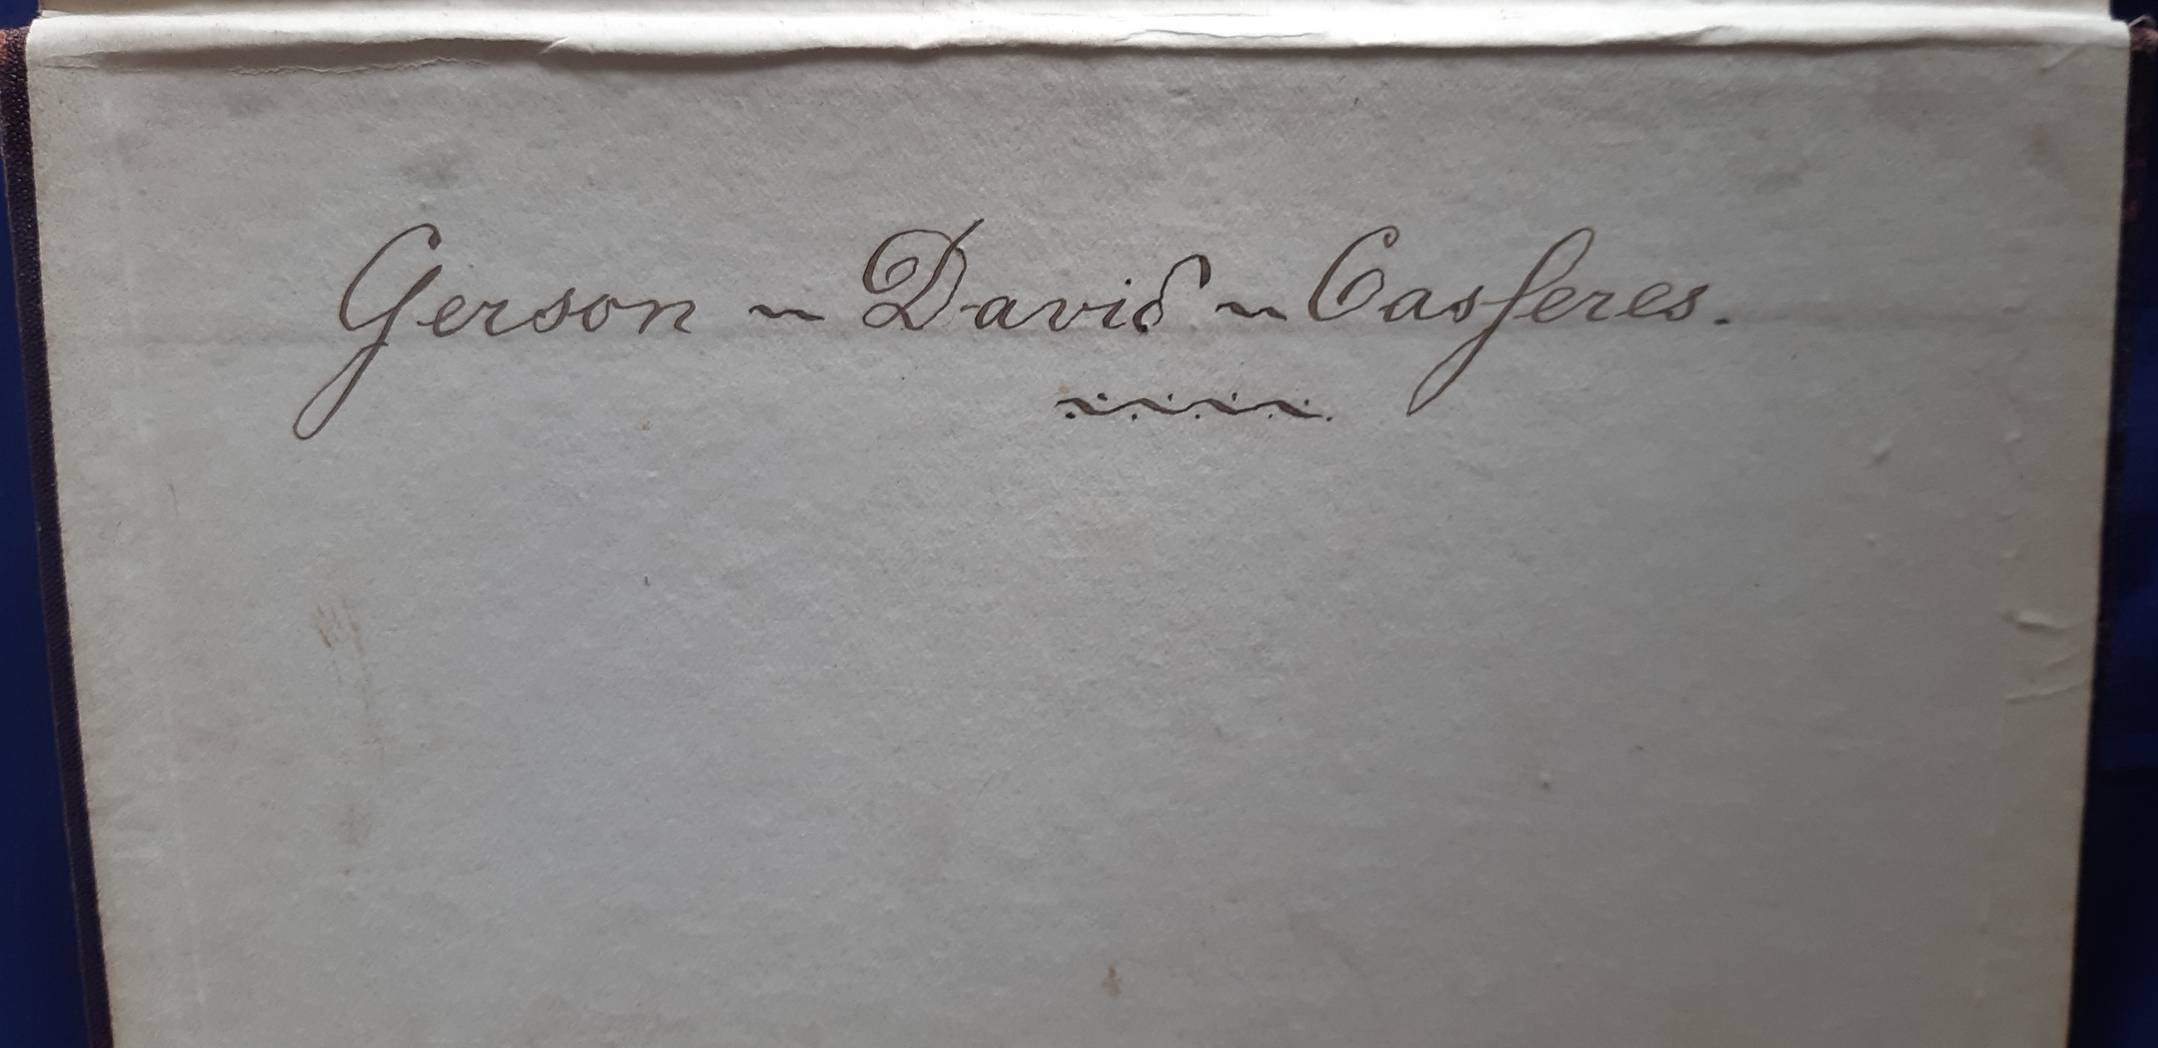 Gerson ~ David ~ Casseres.